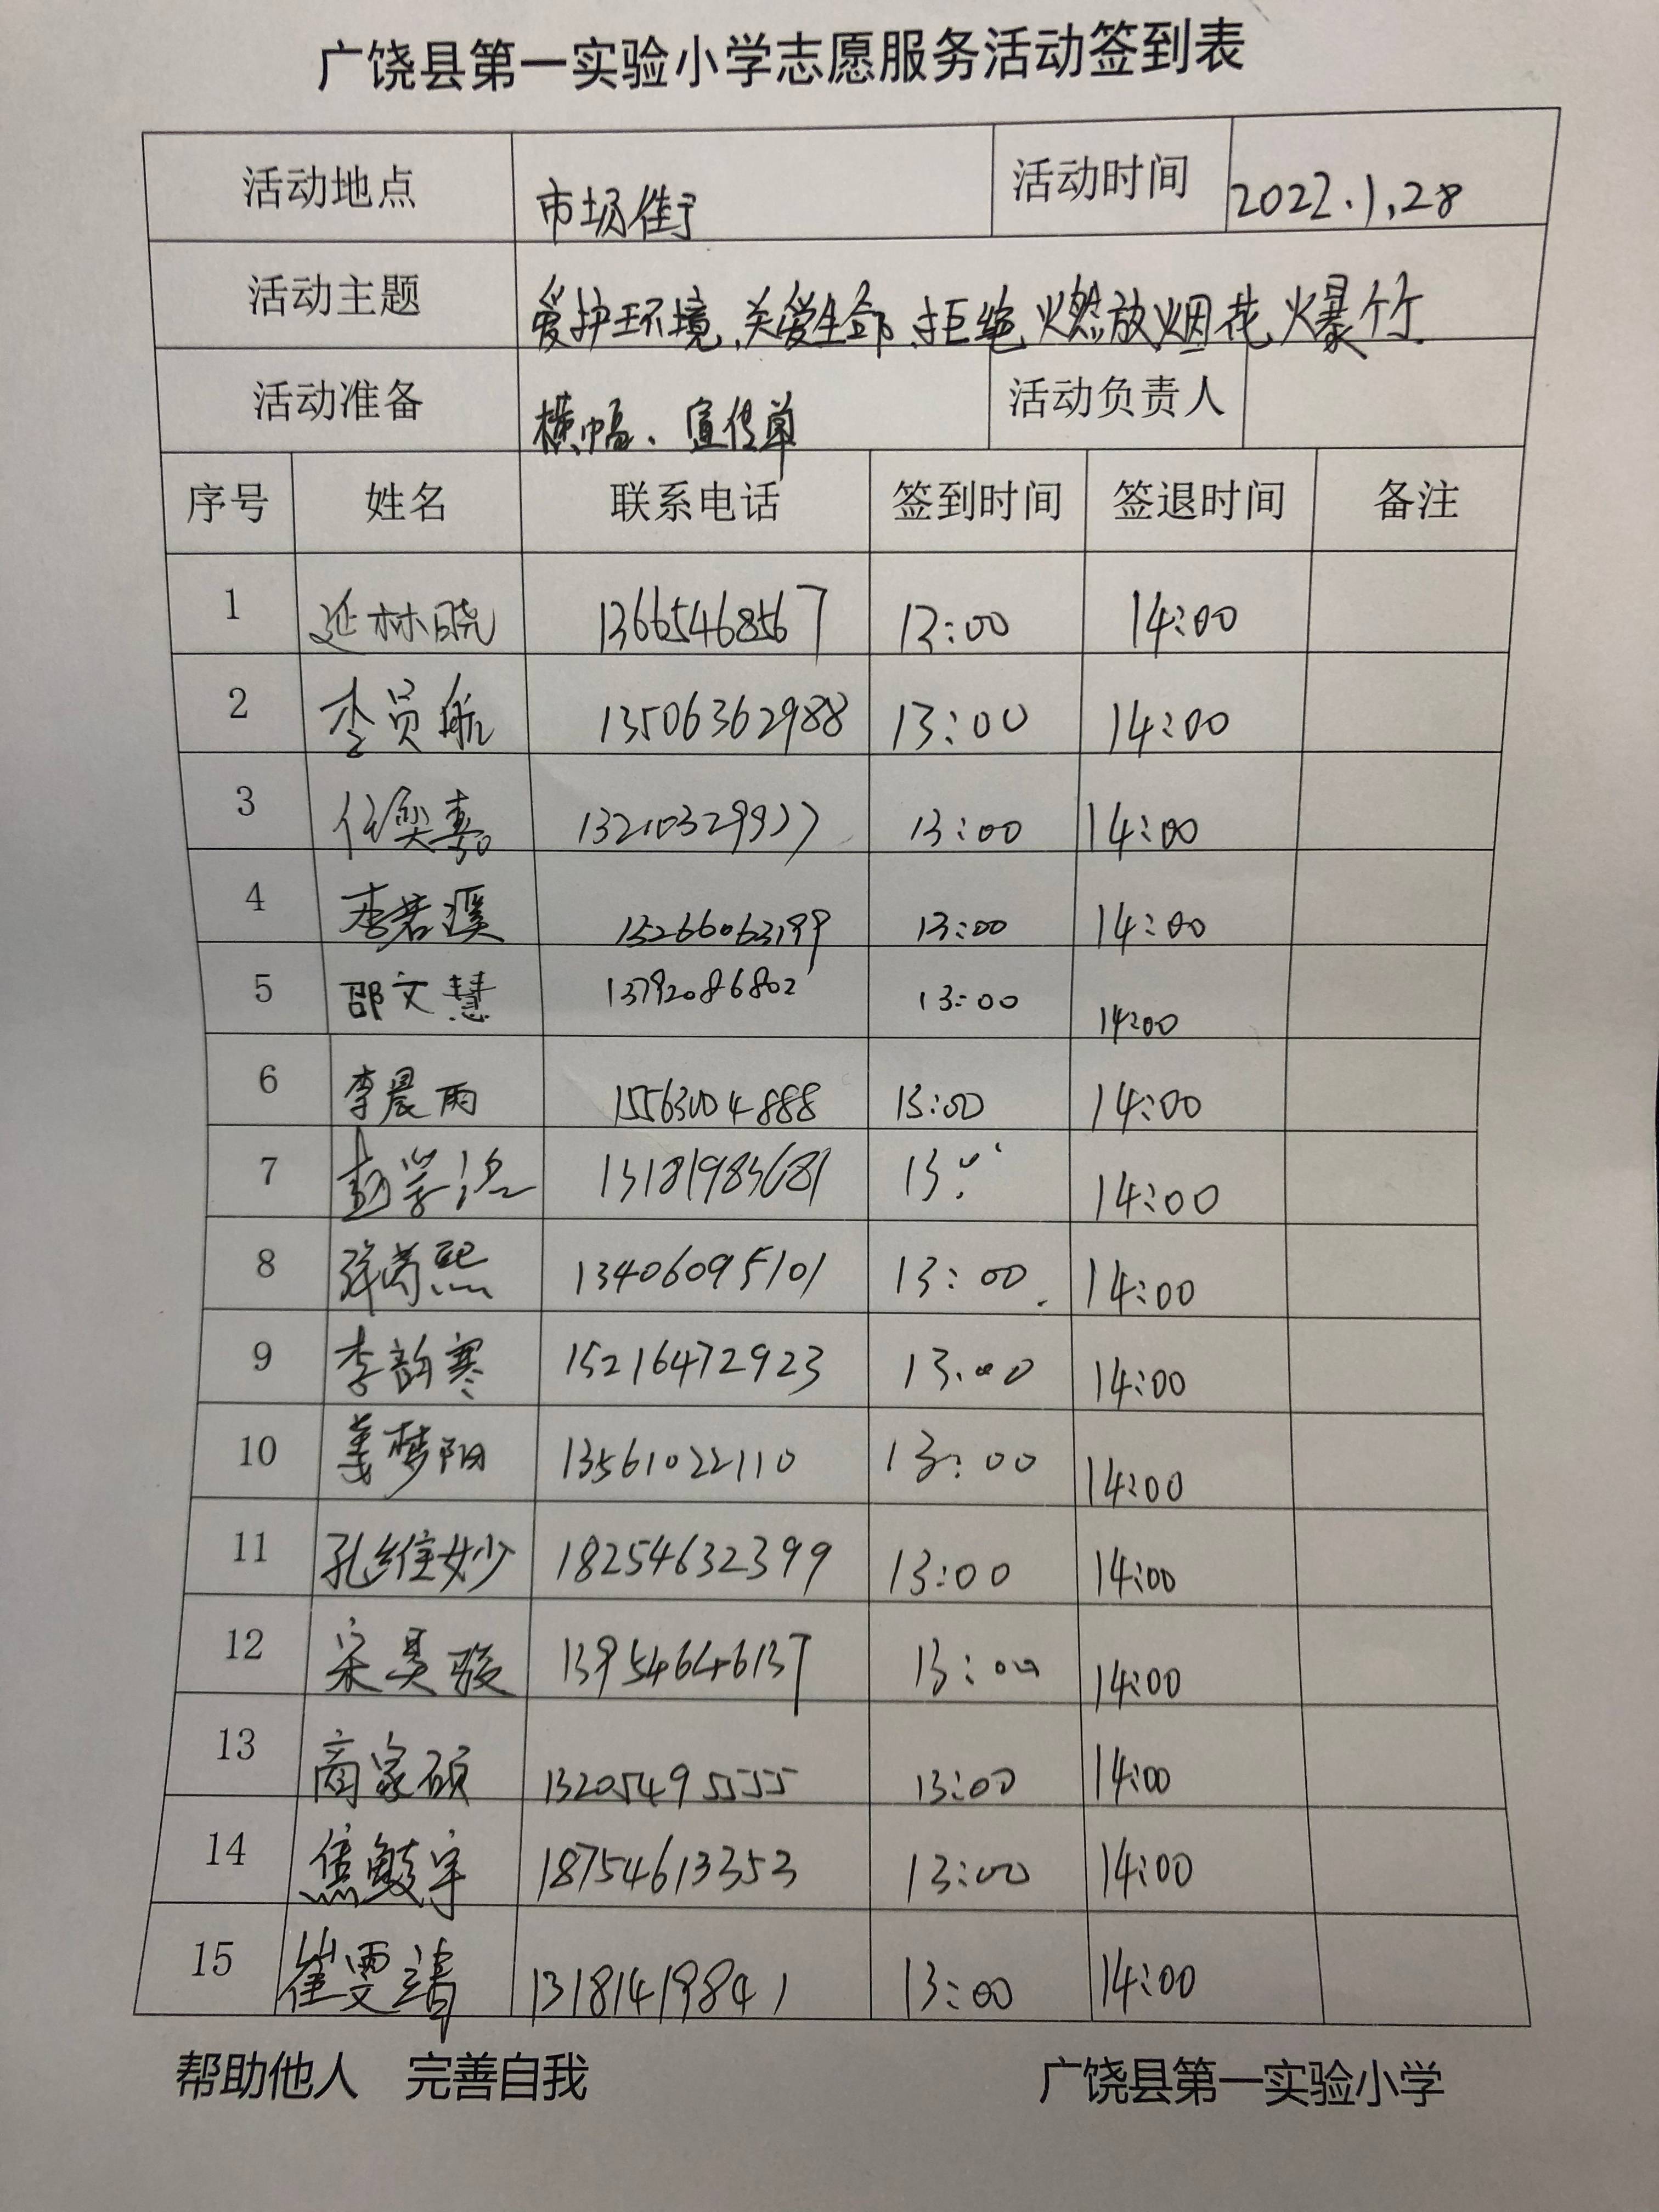 广饶县第一实验小学志愿服务活动签到表
活动地点 市场街 活动时间 2022.1.28
活动主题 爱护环境、关爱生命、拒绝燃放烟花爆竹.
活动准备 横幅、宣传单 活动负责人
序号 姓名 联系电话 签到时间 签退时间 备注
1 延林晓 13665468567 13:00 14:00
2 李员航 13506362988 13:00 14:00
3 任奕嘉 13210329977 13:00 14:00
4 李若溪 15266063199 13:00 14:00
5 邵文慧 13792086802 13:00 14:00
6 李晨雨 15563004888 13:00 14:00
7 13181983681 13:00 14:00
8 张芮熙 13406095101 13:00 14:00
9 李韵寒 15216472923 13:00 14:00
10 姜梦阳 13561022110 13:00 14:00
11 孔维妙 18254632399 13:00 14:00
12 宋昊骏 13954646137 13:00 14:00
13 商家硕 13205495555 13:00 14:00
14 焦宇 18754613353 13:00 14:00
15 崔雯靖 13181419841 13:00 14:00
帮助他人 完善自我 广饶县第一实验小学